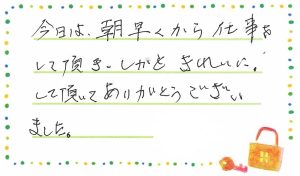 今日は、朝早くから仕事を
して頂き、しかときれいに。
して頂いてありがとうござい
ました。